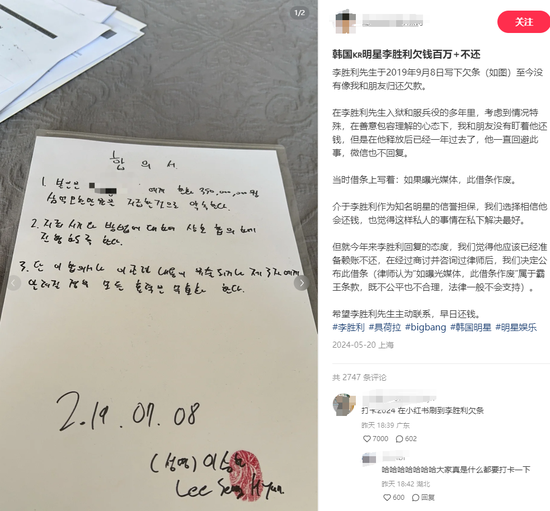 1/2
합의서
1. 본인은 에게 한화 350,000,000원
삼억오천만원을 지급할것으로 약속한다.
2. 지급시기나 방법에 대해 상호 협의하에
진행하도록 한다.
3. 단 이 합의서나 이 관련 내용이 누출되거나 제3자에게
알려질 경우 모든 효력은 무효화 한다.
(성명) 이승현
Lee Seung Hyun
关注
韩国KR明星李胜利欠钱百万+不还
李胜利先生于2019年9月8日写下欠条（如图）至今没
有像我和朋友归还欠款。
在李胜利先生入狱和服兵役的多年里，考虑到情况特
殊，在善意包容理解的心态下，我和朋友没有盯着他还
钱，但是在他释放后已经一年过去了，他一直回避此
事，微信也不回复。
当时借条上写着：如果曝光媒体，此借条作废。
介于李胜利作为知名明星的信誉担保，我们选择相信他
会还钱，也觉得这样私人的事情在私下解决最好。
但就今年来李胜利回复的态度，我们觉得他应该已经准
备赖账不还，在经过商讨并咨询过律师后，我们决定公
布此借条（律师认为"如曝光媒体，此借条作废"属于霸
王条款，既不公平也不合理，法律一般不会支持）。
希望李胜利先生主动联系，早日还钱。
#李胜利 #具荷拉 #bigbang #韩国明星 #明星娱乐
2024-05-20 上海
共 2747 条评论
打卡2024 在小红书刷到李胜利欠条
昨天 18:39 广东
7000 602
哈哈哈哈哈哈哈大家真是什么都要打卡一下
昨天 18:42 湖北
600 回复